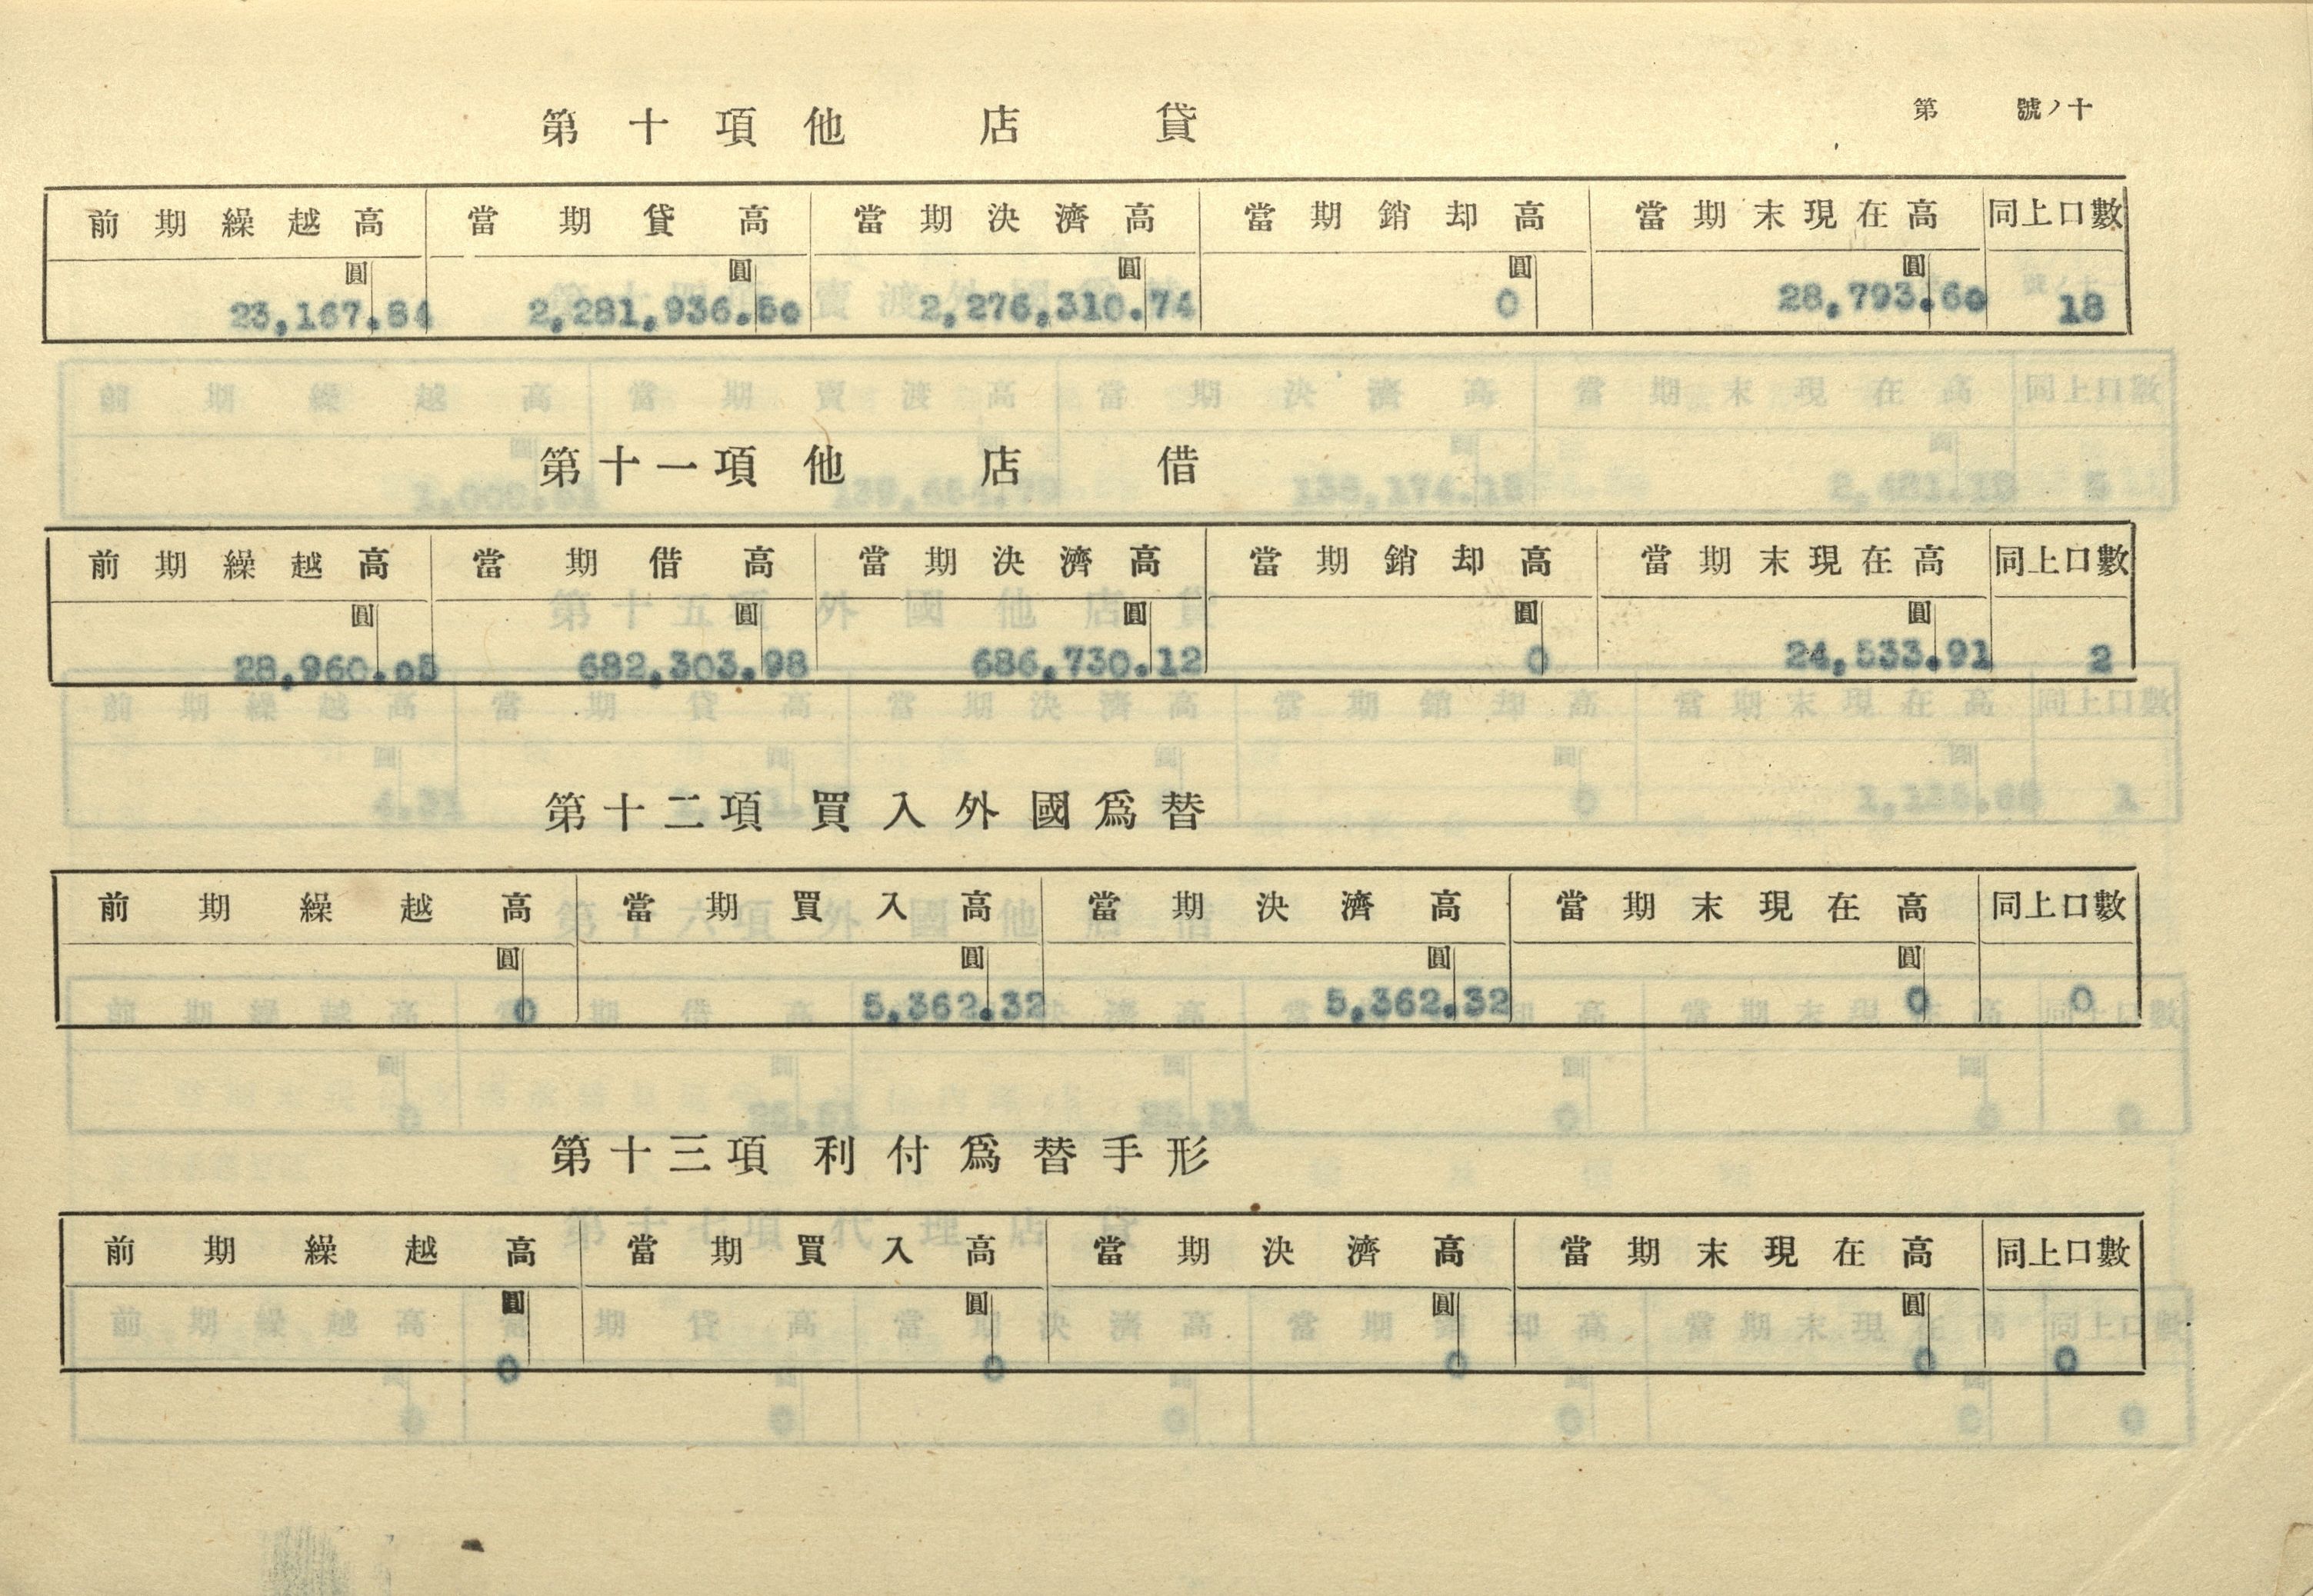 第 號ノ十
第十項 他店貸
前期繰越高 當期貸高 當期決濟高 當期銷却高 當期末現在高 同上口數
圓 圓 圓 圓 圓
23,167.84 2,281,936.50 2,276,310.74 0 28,793.60 18
第十一項 他店借
前期繰越高 當期借高 當期決濟高 當期銷却高 當期末現在高 同上口數
圓 圓 圓 圓 圓
28,960.05 682,303.98 686,730.12 0 24,533.91 2
第十二項 買入外國爲替
前期繰越高 當期買入高 當期決濟高 當期末現在高 同上口數
圓 圓 圓 圓
0 5,362.32 5,362.32 0 0
第十三項 利付爲替手形
前期繰越高 當期買入高 當期決濟高 當期末現在高 同上口數
圓 圓 圓 圓
0 0 0 0 0